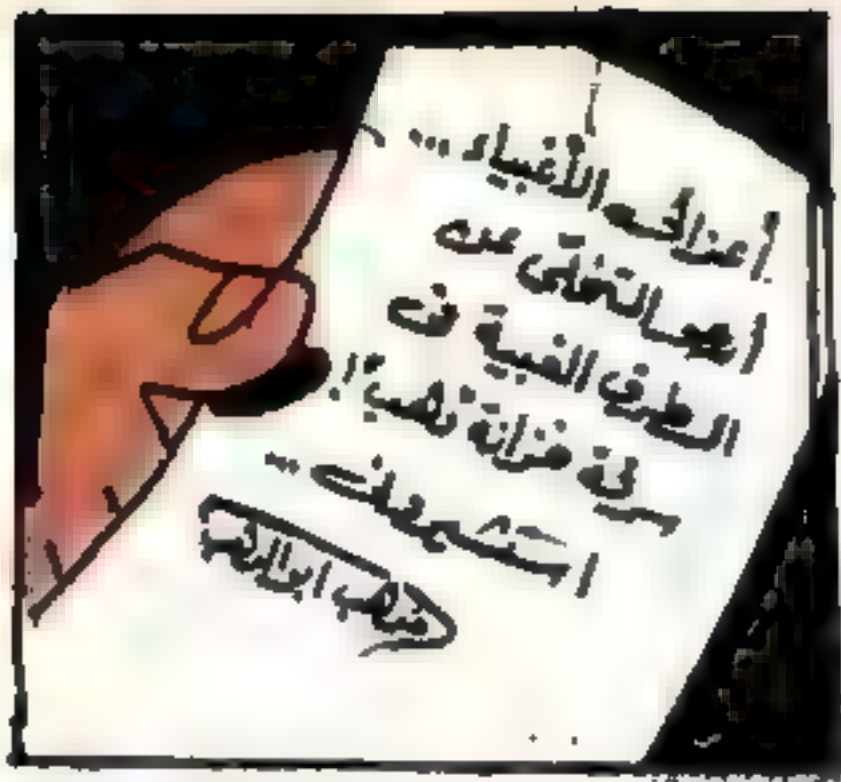 أعزائى الأغبياء ...
أهـ التخلى عن
الطرق الغبية فى
سرقة خزانة ذهب !
استمعت ...
أبو